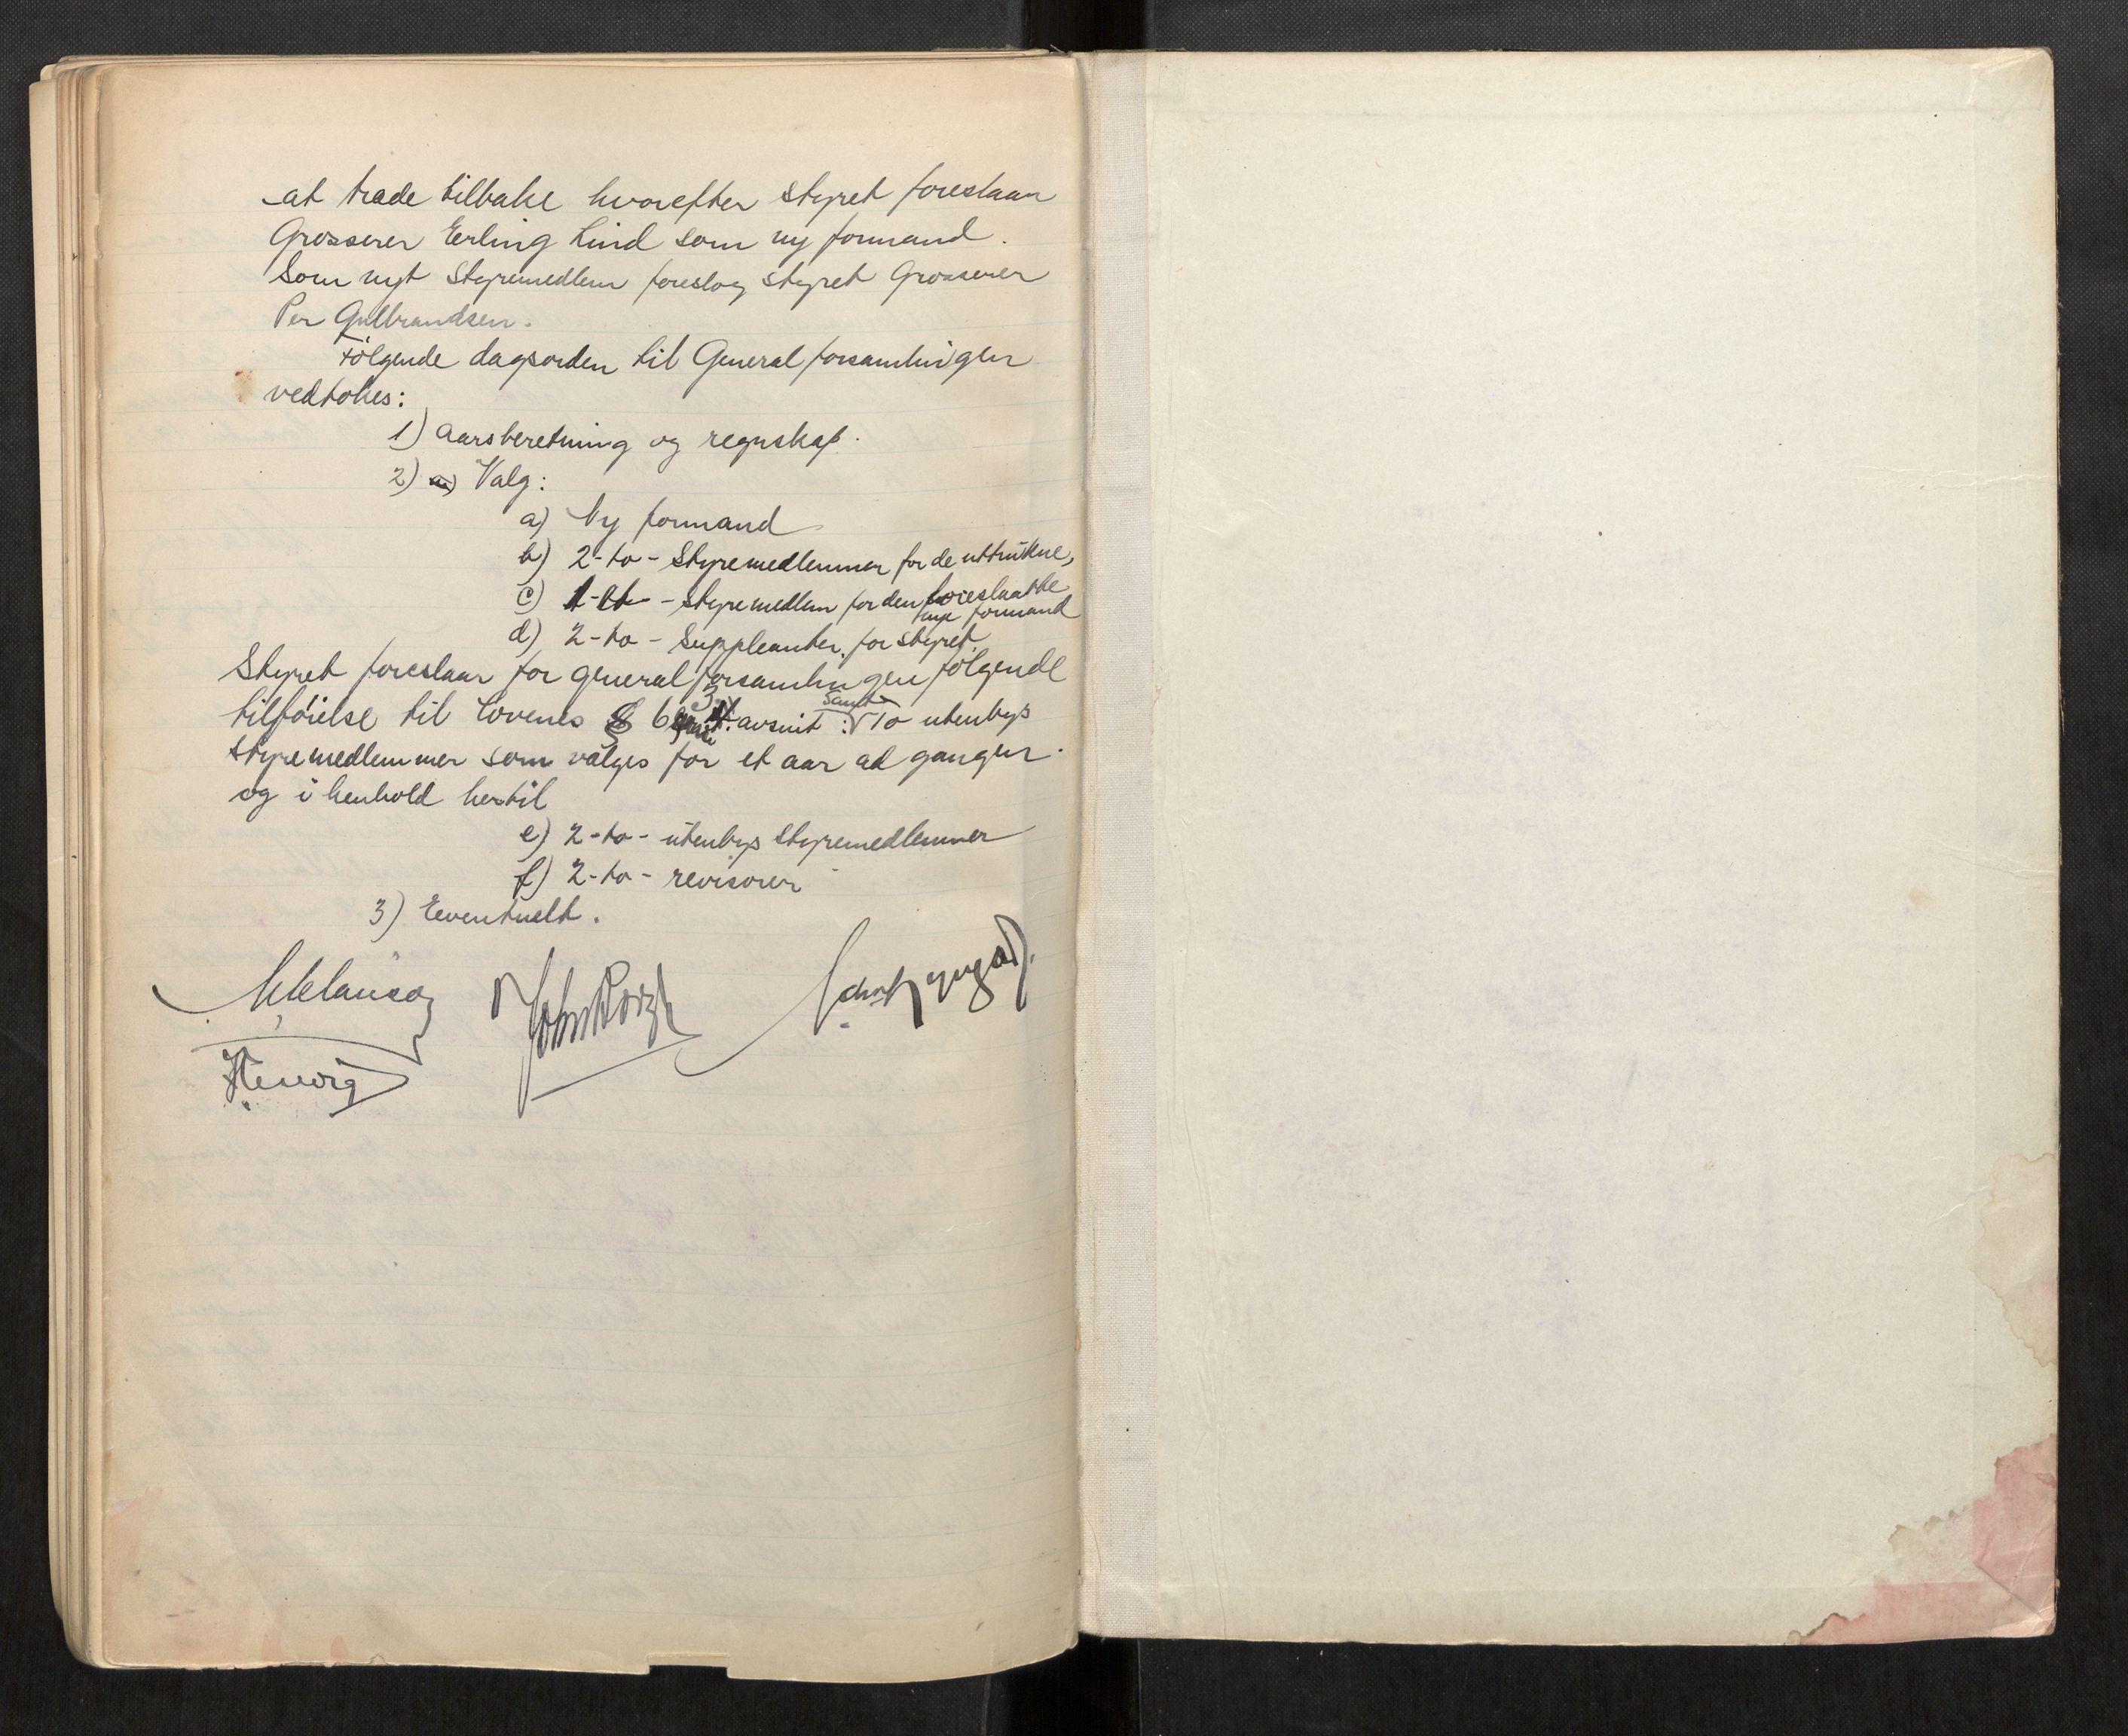 at træde tilbake hvorefter styret foreslaar
Grosserer Erling Lind som ny formand.
Som nyt Styremedlem foreslog styret Grosserer
Per Gulbrandsen.
Følgende dagsorden til Generalforsamlingen
vedtokes:
1) Aarsberetning og regnskap.
2) Valg:
a) Ny formand
b) 2-to- Styremedlemmer for de uttrukne,
c) 1-et- styremedlem for den foreslaatte
nye formand
d) 2-to- Suppleanter for styret.
Styret foreslaar for generalforsamlingen følgende
tilføielse til lovenes § 6 3 avsnit : samt To utenbys
styremedlemmer som vælges for et aar ad gangen.
og i henhold hertil
e) 2-to- utenbys Styremedlemmer
f) 2-to- revisorer
3) Eventuelt.